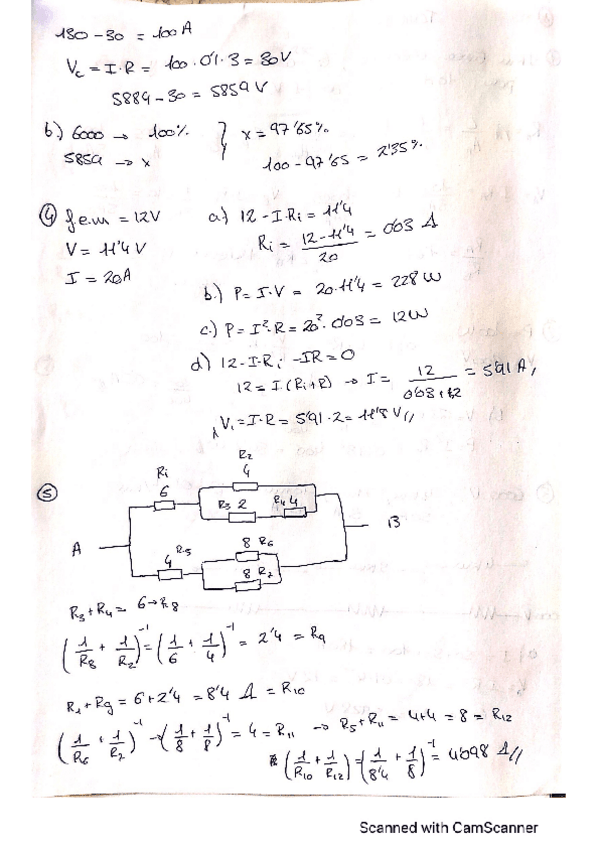 130 - 30 = 100 A
Vc = I·R = 100·0'1·3 = 30V
5889 - 30 = 5859 V
b) 6000 → 100%
5859 → x
x = 97'65%
100 - 97'65 = 2'35%
④ f.e.m = 12V
V = 11'4 V
I = 20A
a) 12 - I·Ri = 11'4
Ri = (12 - 11'4)/20 = 0'03 Ω
b) P = I·V = 20·11'4 = 228 W
c) P = I²·R = 20²·0'03 = 12W
d) 12 - I·Ri - IR = 0
12 = I·(Ri+R) → I = 12/ = 5'91 A,
V1 = I·R = 5'91·2 = 11'8 V//
⑤
R2
4
R1
6
R3 2
R4 4
A
B
R5
4
8 R6
8 R7
R3 + R4 = 6 → R8
(1/R8 + 1/R2)⁻¹ = (1/6 + 1/4)⁻¹ = 2'4 = R9
R1 + R9 = 6 + 2'4 = 8'4 Ω = R10
(1/R6 + 1/R7)⁻¹ → (1/8 + 1/8)⁻¹ = 4 = R11 → R5 + R11 = 4+4 = 8 = R12
(1/R10 + 1/R12) = (1/8'4 + 1/8)⁻¹ = 4'098 Ω//
Scanned with CamScanner